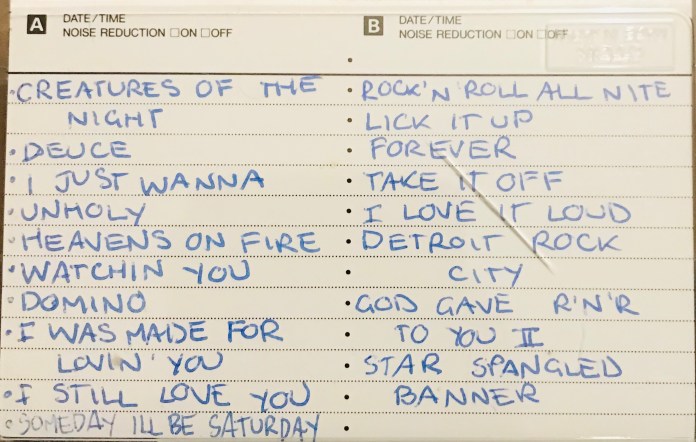 A DATE/TIME
NOISE REDUCTION □ON □OFF
CREATURES OF THE
NIGHT
DEUCE
I JUST WANNA
UNHOLY
HEAVENS ON FIRE
WATCHIN YOU
DOMINO
I WAS MADE FOR
LOVIN' YOU
I STILL LOVE YOU
SOMEDAY ILL BE SATURDAY
B DATE/TIME
NOISE REDUCTION □ON □OFF
ROCK'N ROLL ALL NITE
LICK IT UP
FOREVER
TAKE IT OFF
I LOVE IT LOUD
DETROIT ROCK
CITY
GOD GAVE R'N'R
TO YOU II
STAR SPANGLED
BANNER